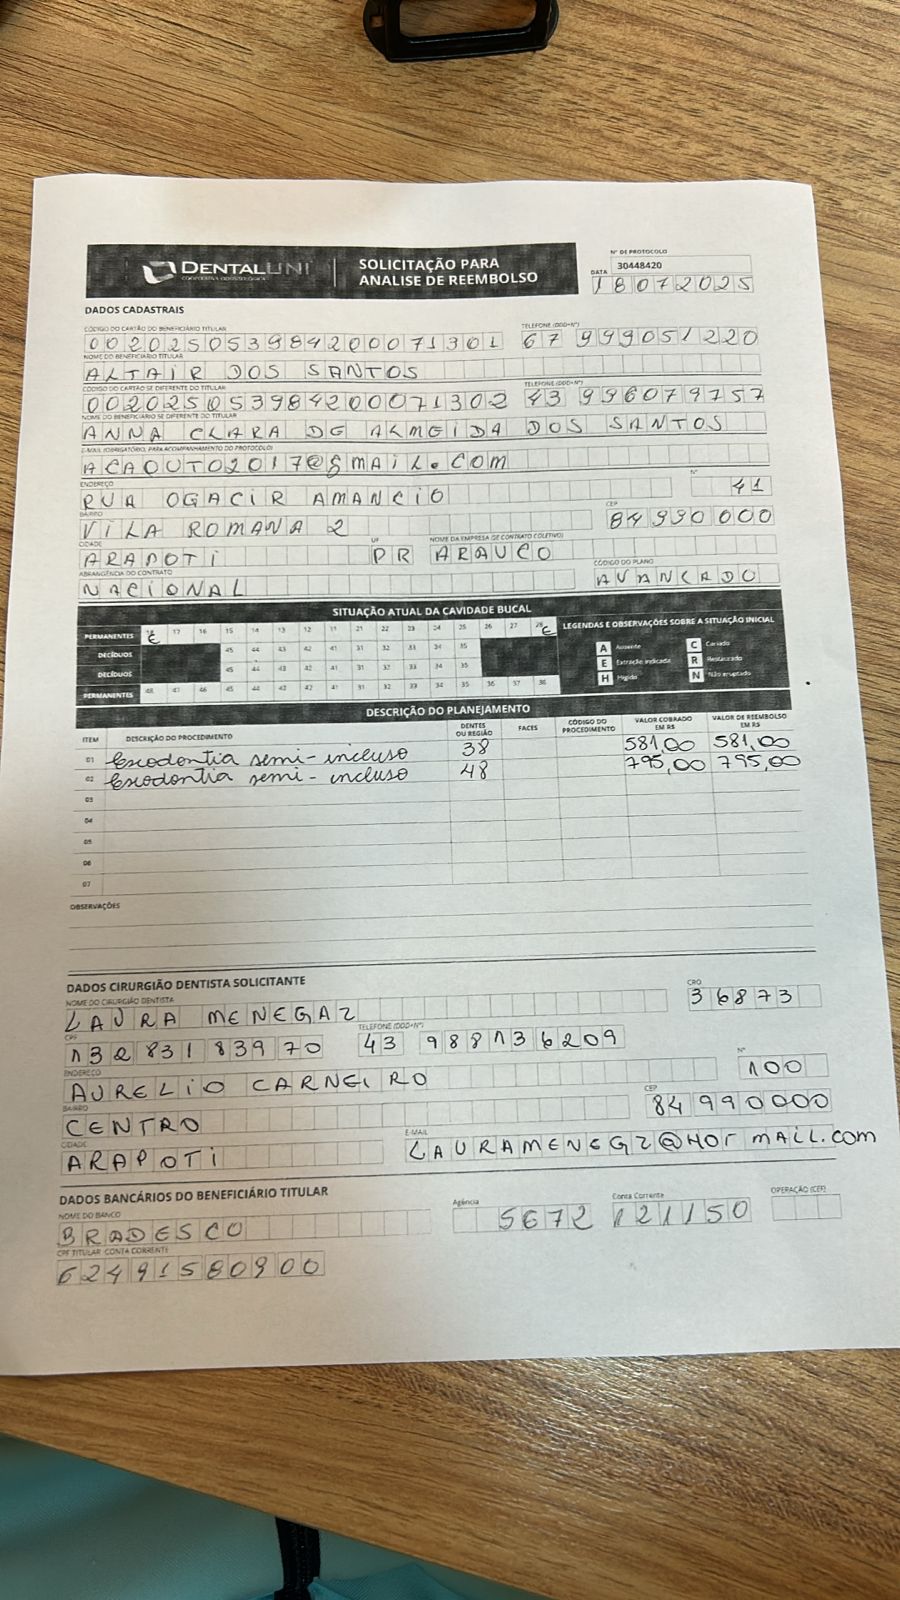 Nº DE PROTOCOLO
DENTALUNI
COOPERATIVA ODONTOLÓGICA
SOLICITAÇÃO PARA
ANALISE DE REEMBOLSO
30448420
DATA
18072025
DADOS CADASTRAIS
CÓDIGO DO CARTÃO DO BENEFICIÁRIO TITULAR TELEFONE (DDD+Nº)
00202505398420007 1301 67 999051220
NOME DO BENEFICIÁRIO TITULAR
ALTAIR DOS SANTOS
CÓDIGO DO CARTÃO SE DIFERENTE DO TITULAR TELEFONE (DDD+Nº)
002025053984200071302 43 996079757
NOME DO BENEFICIÁRIO SE DIFERENTE DO TITULAR
ANNA CLARA DE ALMEIDA DOS SANTOS
E-MAIL (OBRIGATÓRIO, PARA ACOMPANHAMENTO DO PROTOCOLO)
ACAOUTO2017@GMAIL.COM
ENDEREÇO Nº
RUA OGACIR AMANCIO 41
BAIRRO CEP
VILA ROMANA 2 84990000
CIDADE UF NOME DA EMPRESA (SE CONTRATO COLETIVO)
ARAPOTI PR ARAUCO
ABRANGÊNCIA DO CONTRATO CÓDIGO DO PLANO
NACIONAL AVANCADO
SITUAÇÃO ATUAL DA CAVIDADE BUCAL
LEGENDAS E OBSERVAÇÕES SOBRE A SITUAÇÃO INICIAL
PERMANENTES 18 E 17 16 15 14 13 12 11 21 22 23 24 25 26 27 28 E
DECÍDUOS 45 44 43 42 41 31 32 33 34 35
DECÍDUOS 45 44 43 42 41 31 32 33 34 35
PERMANENTES 48 47 46 45 44 43 42 41 31 32 33 34 35 36 37 38
A Ausente C Cariado
E Extração indicada R Restaurado
H Hígido N Não eruptado
DESCRIÇÃO DO PLANEJAMENTO
ITEM DESCRIÇÃO DO PROCEDIMENTO DENTES OU REGIÃO FACES CÓDIGO DO PROCEDIMENTO VALOR COBRADO EM R$ VALOR DE REEMBOLSO EM R$
01 Exodontia semi-incluso 38 581,00 581,00
02 Exodontia semi-incluso 48 795,00 795,00
03
04
05
06
07
OBSERVAÇÕES
DADOS CIRURGIÃO DENTISTA SOLICITANTE
NOME DO CIRURGIÃO DENTISTA CRO
LAURA MENEGAZ 36873
CPF TELEFONE (DDD+Nº)
132 831 839 70 43 988136209
ENDEREÇO Nº
AURELIO CARNEIRO 100
BAIRRO CEP
CENTRO 84990000
CIDADE E-MAIL
ARAPOTI LAURAMENEGZ@HOTMAIL.COM
DADOS BANCÁRIOS DO BENEFICIÁRIO TITULAR
NOME DO BANCO Agência Conta Corrente OPERAÇÃO (CEF)
BRADESCO 5672 121150
CPF TITULAR CONTA CORRENTE
62491580900